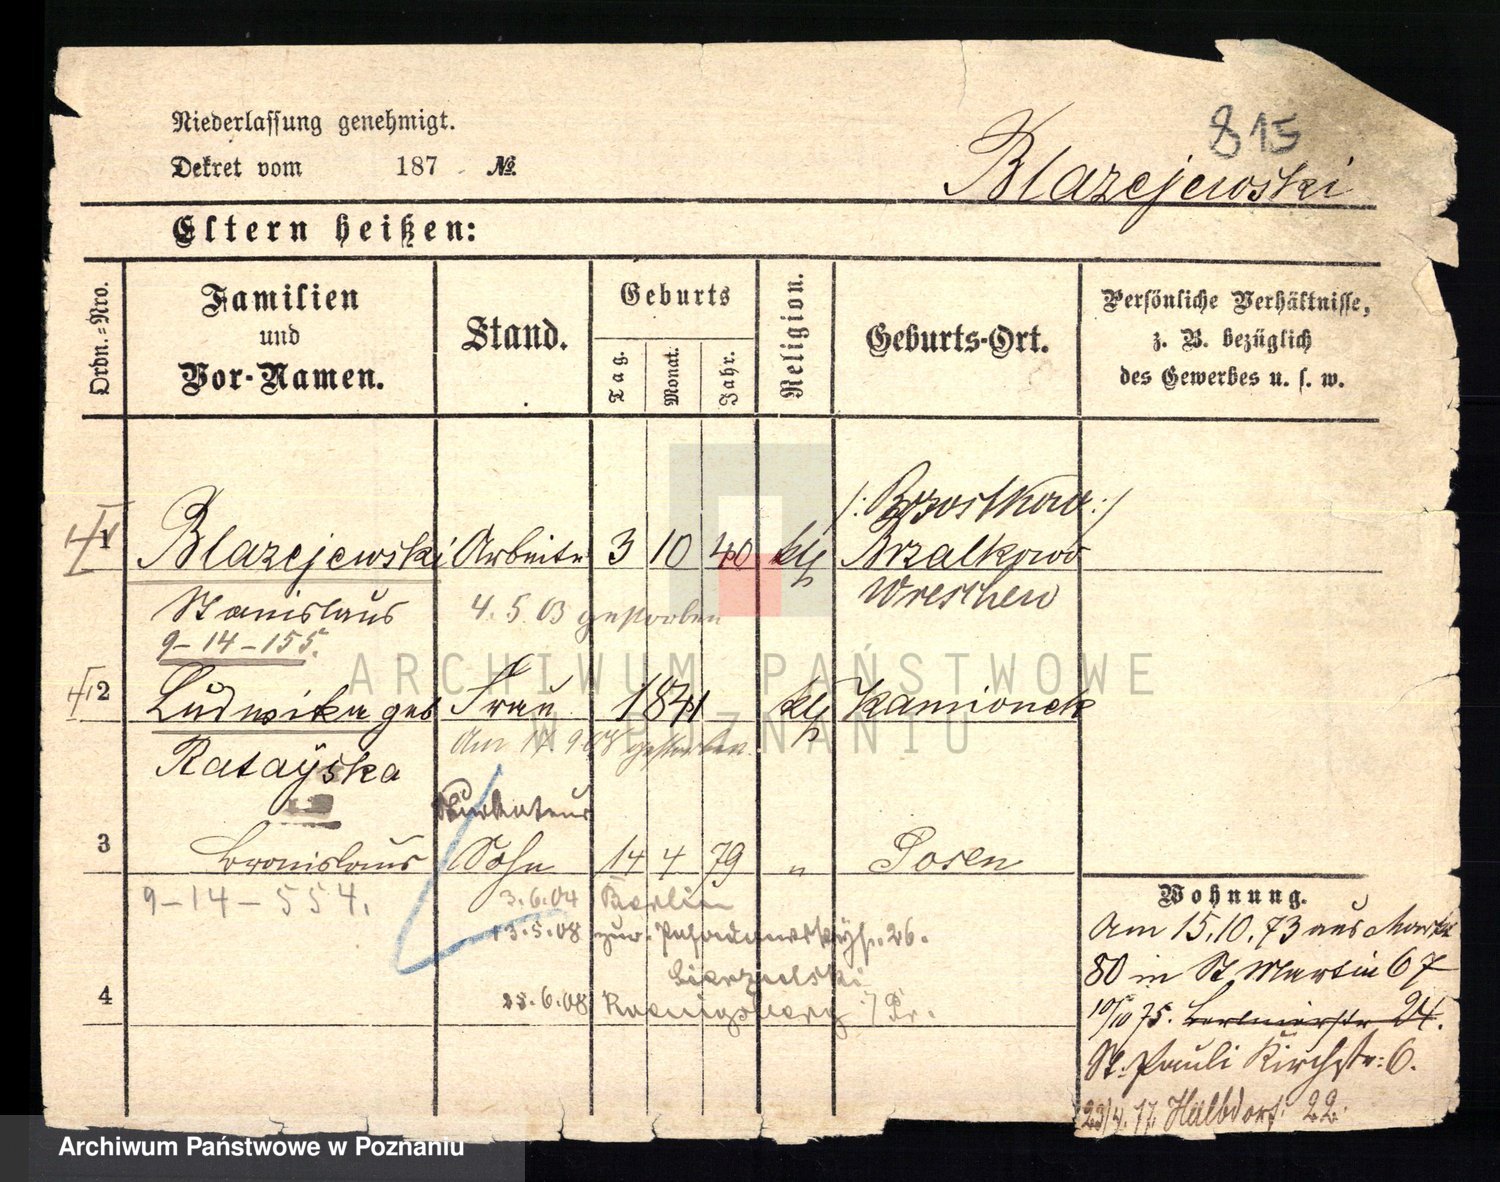 Niederlassung genehmigt.
815
Dekret vom 187 №
Blazejewski
Eltern heißen:
Ordn.-Nro.
Familien und Vor-Namen.
Stand.
Geburts
Tag.
Monat.
Jahr.
Religion.
Geburts-Ort.
Persönliche Verhältnisse,
z. B. bezüglich
des Gewerbes u. s. w.
/: Brzostkow :/
1 Blazejewski Arbeiter 3 10 40 kth Brzalkowo
Wreschen
Stanislaus 4.5.03 gestorben
9-14-155.
2 Ludwika geb Frau 1841 kth Kamionek
Am 17 9 08 gestorben
Ratayska
3 Bronislaus Sohn 14 4 79 " Posen
9-14-554.
3.6.04 Berlin
13.5.08 zur. 26.
4 25.6.08 Koenigsberg i/Pr.
Wohnung.
Am 15.10.73 aus Markt
80 in St Martin 67
10/10 75. Berlinerstr 24.
St: Pauli Kirchstr: 6.
23/4. 17. Halbdorf: 22.
ARCHIWUM PAŃSTWOWE
W POZNANIU
Archiwum Państwowe w Poznaniu